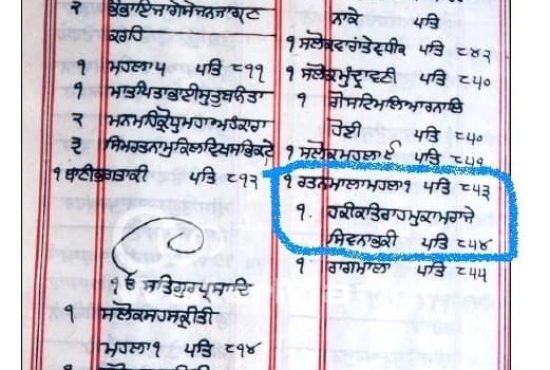 ੨
ਕਰਹਿ
੧ ਮਹਲਾ ੫ ਪਤਿ ੮੧੧
੧ ਮਾਤਪਿਤਾਭਾਈਸੁਤੁਬਨਿਤਾ
੨ ਮਨਮਹਿਕ੍ਰੋਧੁਮਹਾਅਹੰਕਾਰਾ
੩
੧ ਬਾਣੀਭਗਤਾਕੀ ਪਤਿ ੮੧੨
੧ੳ ਸਤਿਗੁਰਪ੍ਰਸਾਦਿ
੧ ਸਲੋਕਸਹਸਕ੍ਰਿਤੀ
ਮਹਲਾ ੧ ਪਤਿ ੮੧੪
ਨਾਕੇ ਪਤਿ
੧ ਸਲੋਕਵਾਰਾਂਤੇਵਧੀਕ ਪਤਿ ੮੪੨
੧ ਸਲੋਕੁਮੁੰਦਾਵਣੀ ਪਤਿ ੮੫੦
੧ ਗੋਸਟਿਮਲਿਆਰਨਾਲਿ
ਹੋਈ ਪਤਿ ੮੫੦
੧ ਸਲੋਕਮਹਲਾ ੯ ਪਤਿ ੮੫੧
੧ ਰਤਨਮਾਲਾਮਹਲਾ ੧ ਪਤਿ ੮੫੩
੧. ਹਕੀਕਤਿਰਾਹਮੁਕਾਮਰਾਜੇ
ਸਿਵਨਾਭਕੀ ਪਤਿ ੮੫੪
੧ ਰਾਗਮਾਲਾ ਪਤਿ ੮੫੫